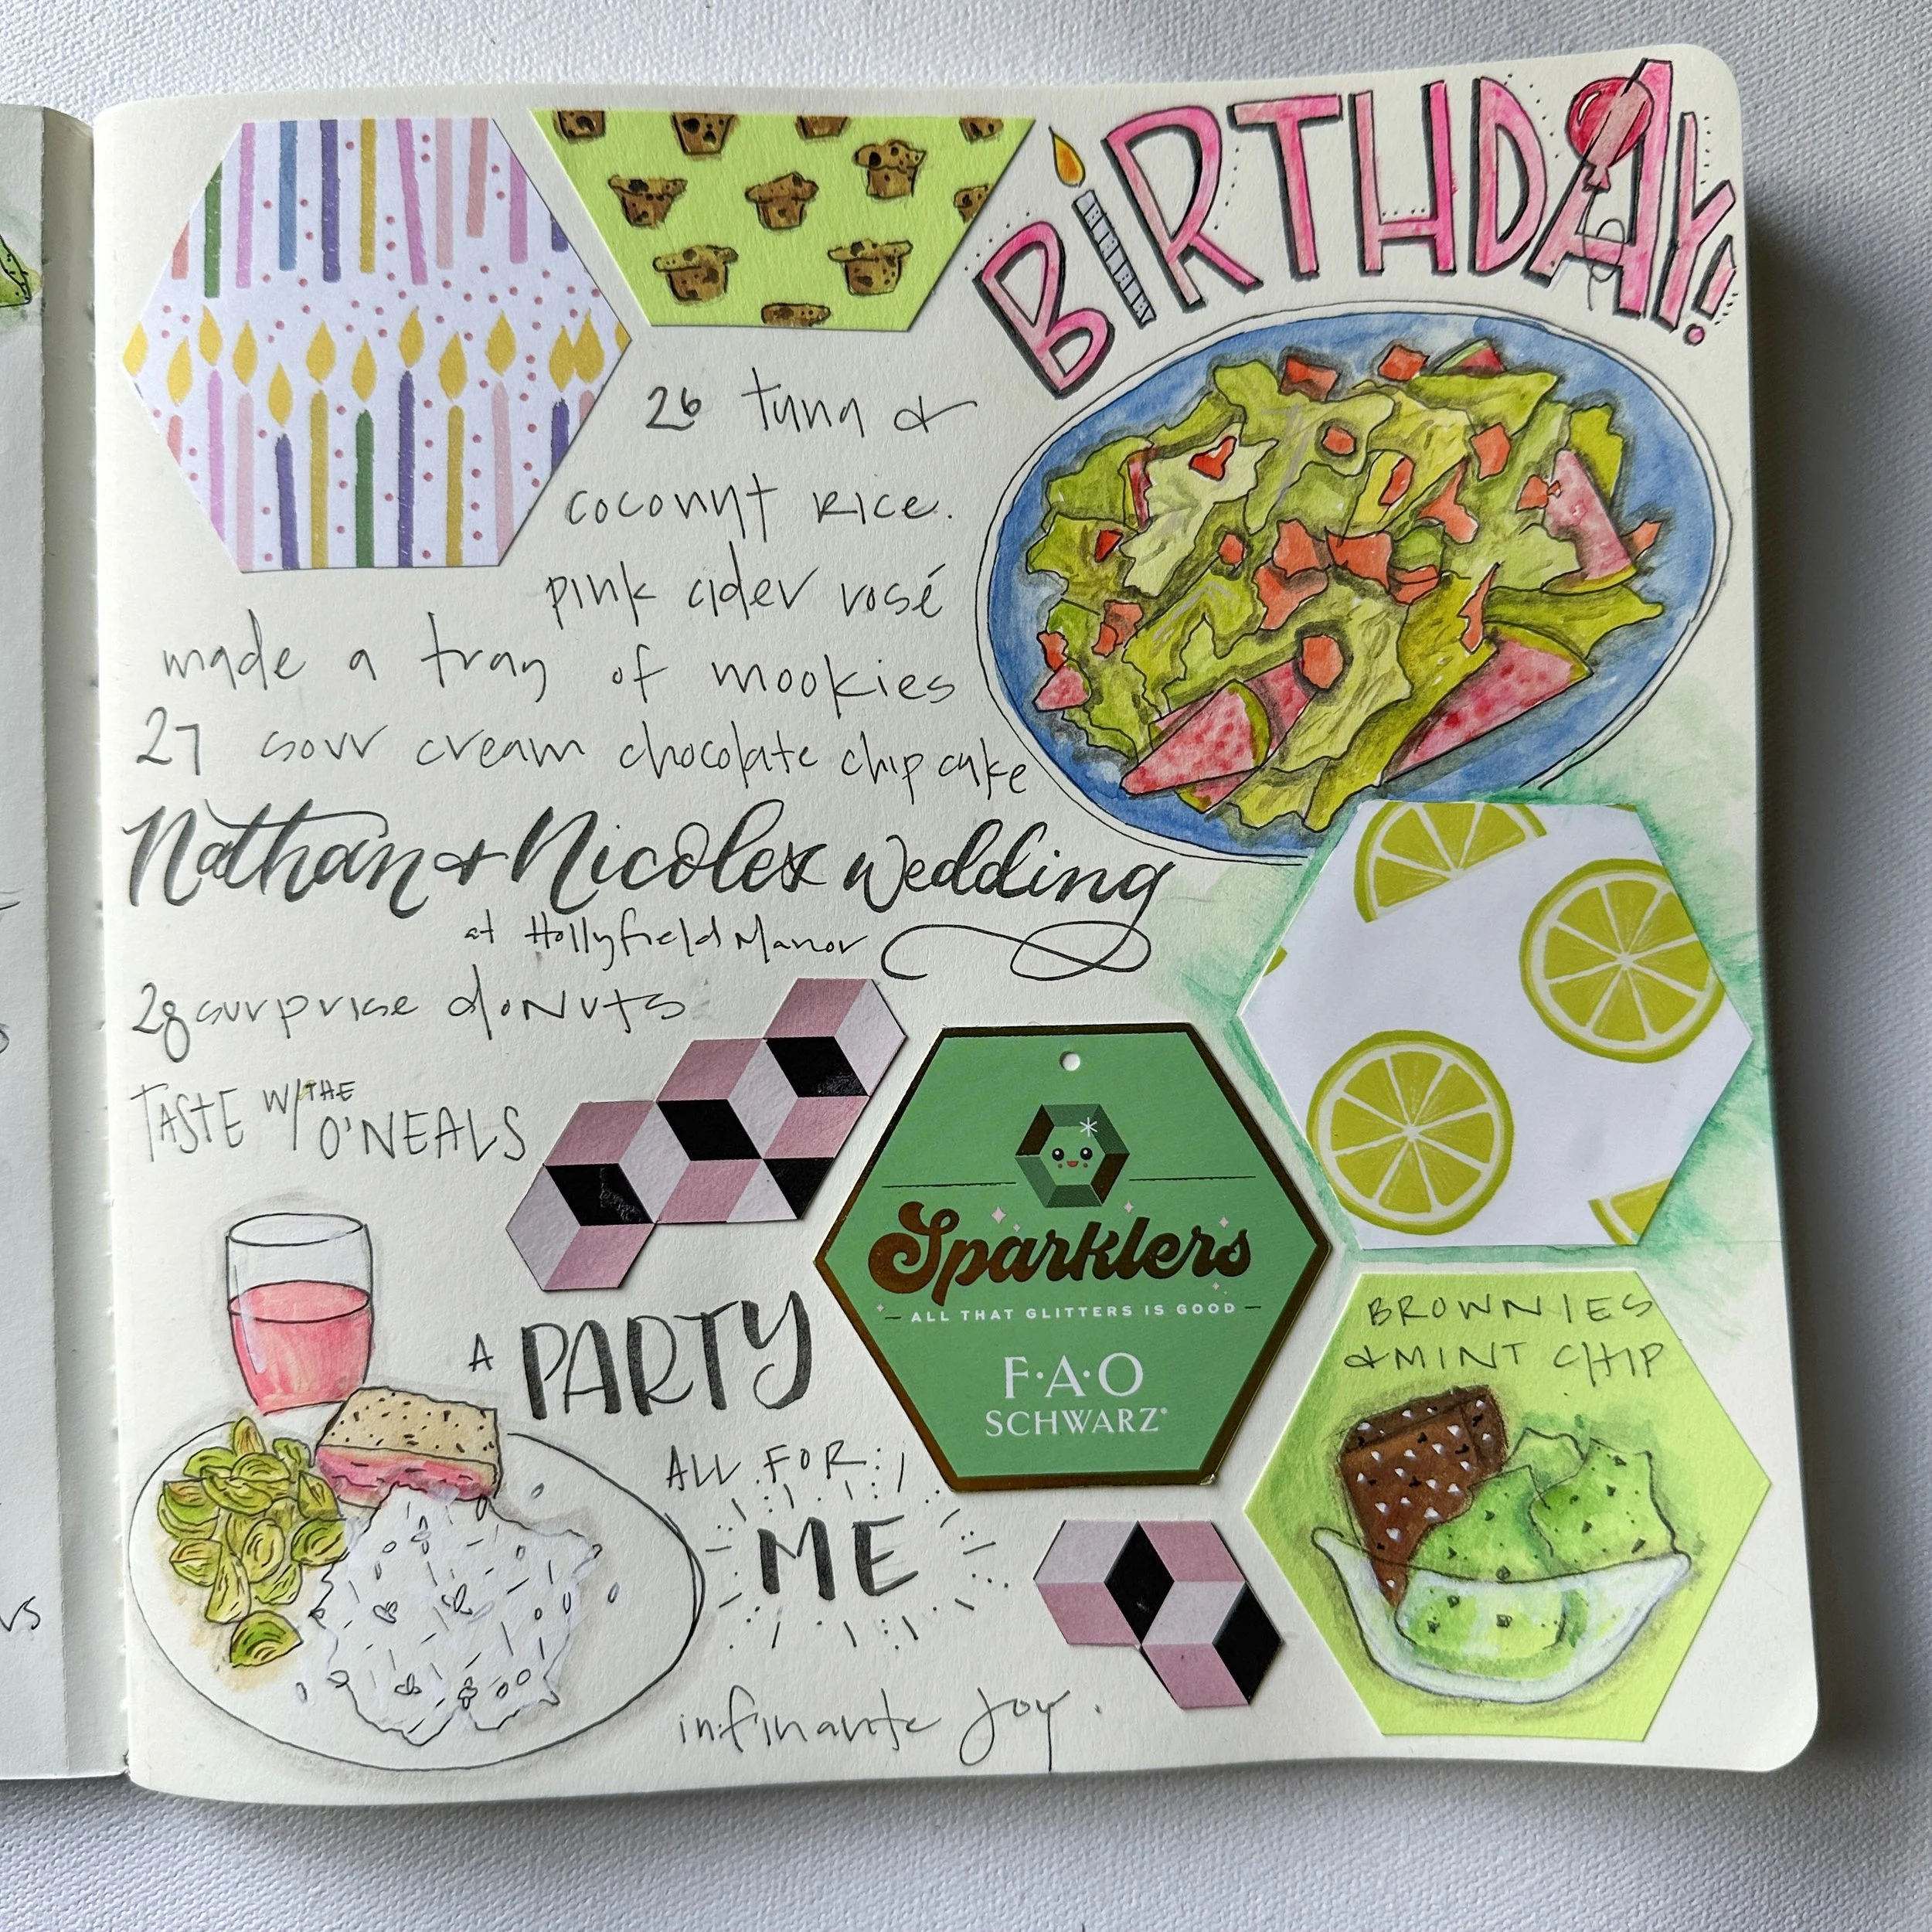 BIRTHDAY!
26 tuna &
coconut rice.
pink cider rosé
made a tray of mookies
27 sour cream chocolate chip cake
Nathan & Nicoles Wedding
at Hollyfield Manor
28 surprise donuts
TASTE W/ THE O'NEALS
Sparklers
ALL THAT GLITTERS IS GOOD
F·A·O
SCHWARZ®
BROWNIES
& MINT CHIP
A PARTY
ALL FOR
ME
infinante joy.